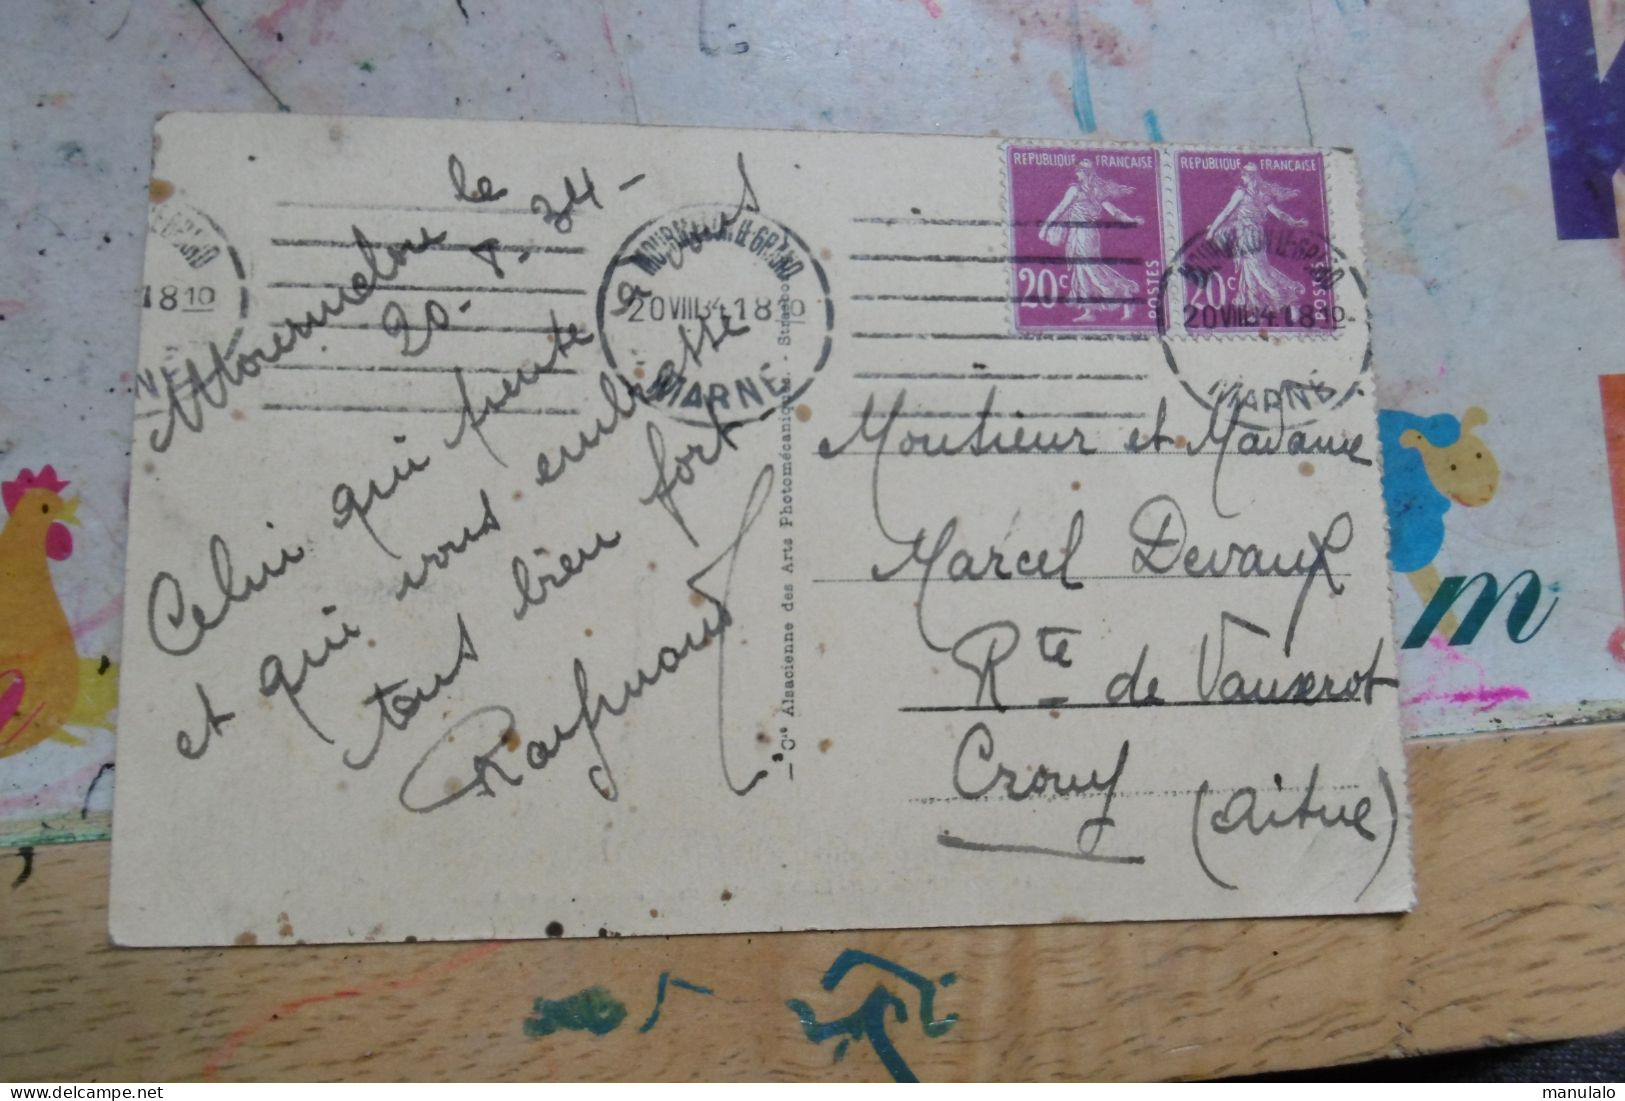 Mourmelon le
20-8-34-
Celui qui pense à vous
et qui vous embrasse
tous bien fort
Raymond
MOURMELON LE GRAND
20 VIII 34 18 10
MARNE
18 10
REPUBLIQUE FRANÇAISE
20c
POSTES
REPUBLIQUE FRANÇAISE
20c
POSTES
MOURMELON LE GRAND
20 VIII 34 18 10
MARNE
Cie Alsacienne des Arts Photomécaniques. - Strasbourg
Monsieur et Madame
Marcel Devaux
Rte de Vauxerot
Crouy
(Aisne)
m
manulalo